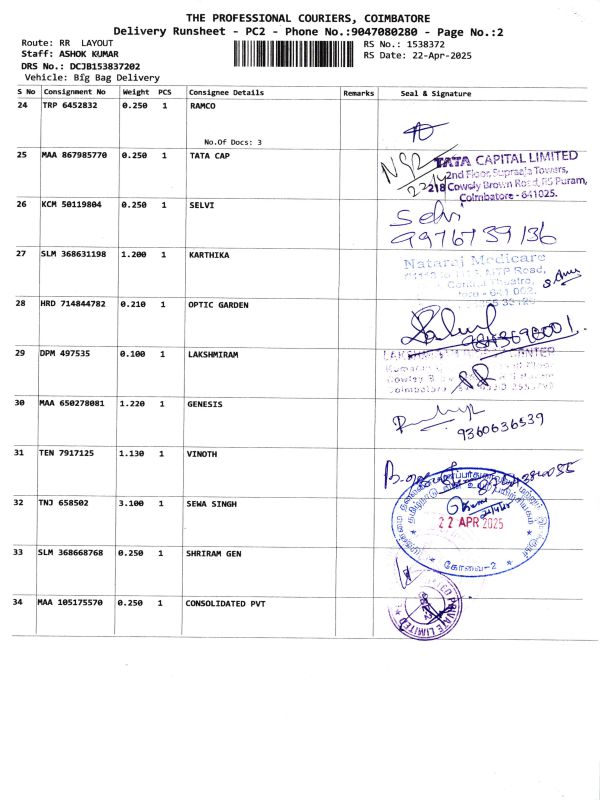 THE PROFESSIONAL COURIERS, COIMBATORE
Delivery Runsheet - PC2 - Phone No.:9047080280 - Page No.:2
Route: RR LAYOUT
Staff: ASHOK KUMAR
DRS No.: DCJB153837202
Vehicle: Big Bag Delivery
RS No.: 1538372
RS Date: 22-Apr-2025
S No Consignment No Weight PCS Consignee Details Remarks Seal & Signature
24 TRP 6452832 0.250 1 RAMCO
No.Of Docs: 3
25 MAA 867985770 0.250 1 TATA CAP
TATA CAPITAL LIMITED
2nd Floor, Supraaja Towers,
218 Cowly Brown Road, RS Puram,
Coimbatore - 641025.
26 KCM 50119804 0.250 1 SELVI
Selvi
9976739136
27 SLM 368631198 1.200 1 KARTHIKA
Nataraj Medicare
MTP Road,
Central Theatre,
28 HRD 714844782 0.210 1 OPTIC GARDEN
29 DPM 497535 0.100 1 LAKSHMIRAM
30 MAA 650278081 1.220 1 GENESIS
9360636539
31 TEN 7917125 1.130 1 VINOTH
32 TNJ 658502 3.100 1 SEWA SINGH
22 APR 2025
கோவை-2
33 SLM 368668768 0.250 1 SHRIRAM GEN
34 MAA 105175570 0.250 1 CONSOLIDATED PVT
PRIVATE LIMITED